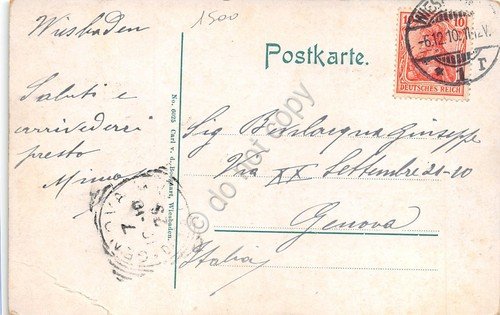 Wiesbaden
1500
Saluti e
arrivederci
presto
Mimo
Postkarte.
No. 6025 Carl v. d. Boogaart, Wiesbaden.
10 10
DEUTSCHES REICH
WIESB
-6.12.10.11-12V.
* 1 r
Sig Bevilacqua Giuseppe
Via XX Settembre 21-10
Genova
Italia
© do not copy